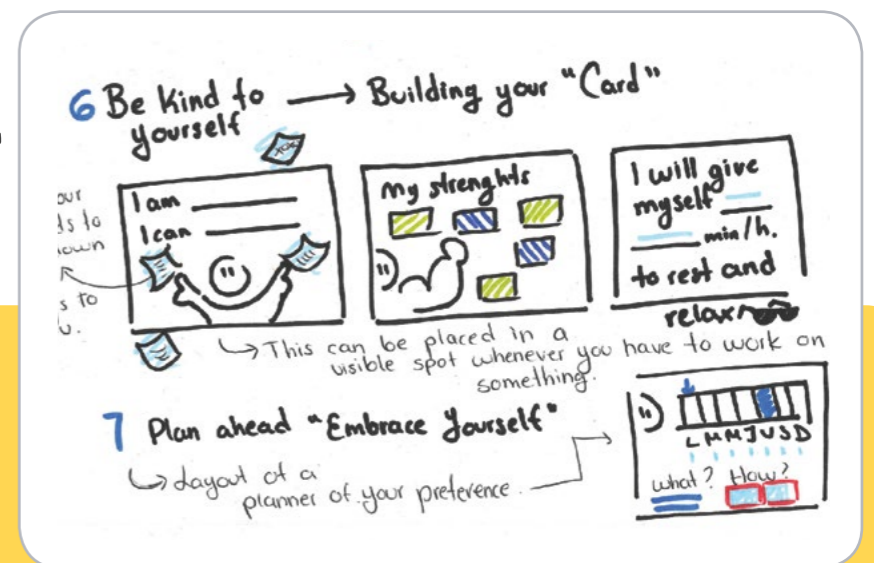 6 Be Kind to yourself → Building your "Card"
I am
I can
my strenghts
I will give
myself
min/h.
to rest and
relax
This can be placed in a
visible spot whenever you have to work on
something.
7 Plan ahead "Embrace Yourself"
Layout of a
planner of your preference.
L M M J V S D
what? How?
our
ds to
own
s to
u.